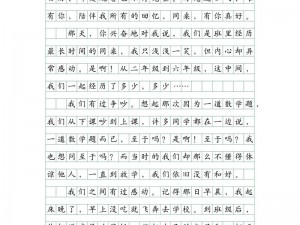 有你，陪伴我所有的回忆。同来，有你真好。
那天，你兴奋地对我说，我们是班里经历
最长时间的同来，我只浅浅一笑。但内心却异
常感动。是啊！从二年级到六年级，这中间，
我们一起经历了多少，多少……
我们有过争吵。想起那次因为一道数学题，
我们从下课吵到上课。许多同学都在一边说，
一道数学题而已，至于吗？是啊！至于吗？我
也想问至于吗？而当时的我们却那么不懂得体
谅他人，一直到放学，我们依旧没有和好。
我们之间有过感动。记得那日早晨，我起
床晚了，早上没吃就飞奔去学校。到班级后，